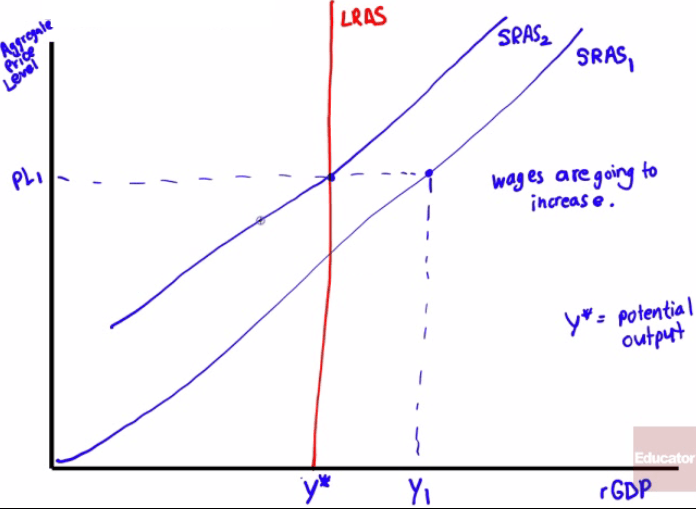 Aggregate
Price
Level
LRAS
SRAS2
SRAS1
PL1
wages are going to
increase.
Y* = potential
output
Educator
Y*
Y1
rGDP